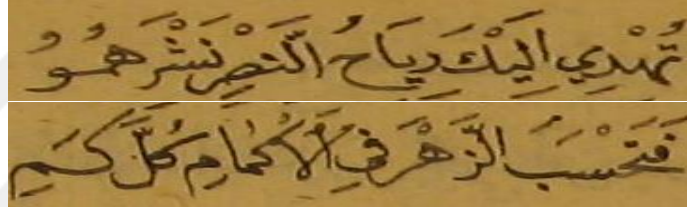 تُهْدِي اليْكَ رِيَاحُ النَّصْرِ نَشْرَ هُمُوُ
فَتَحْسَبُ الزَّهْرَ فِي الْاَكْمَامِ كُلَّ كَمِي